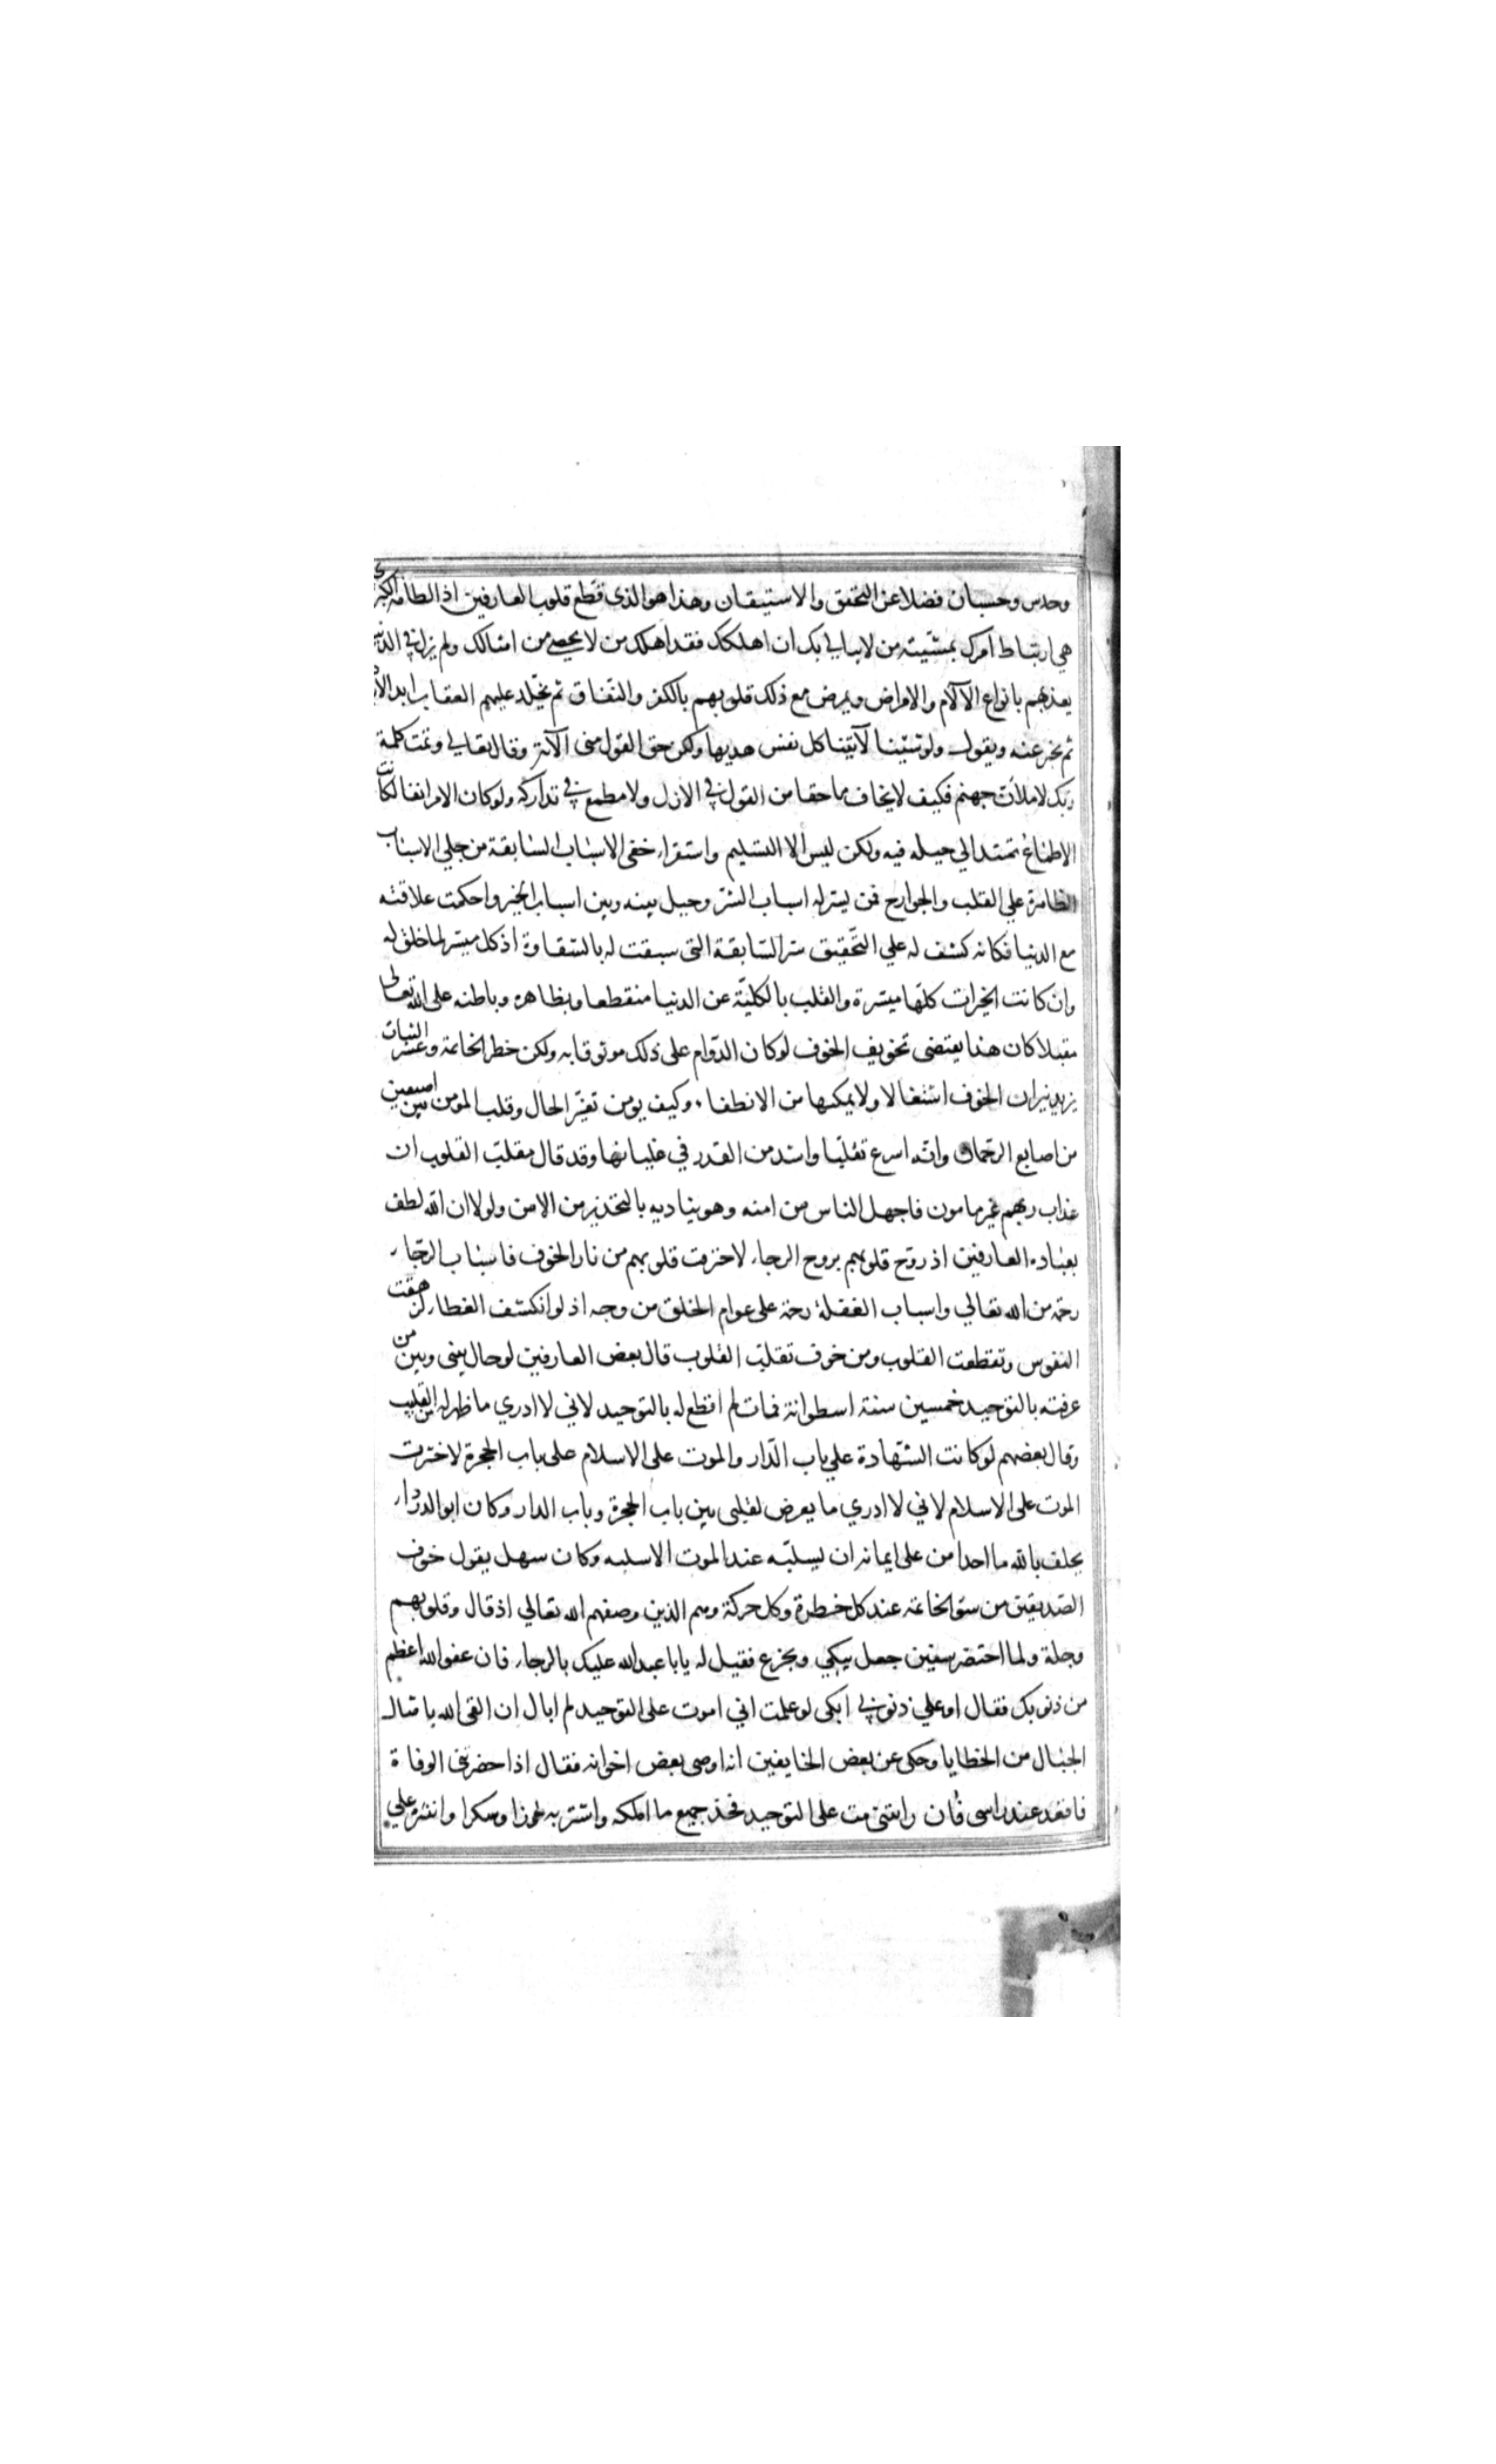 وحدس وحسبان فضلا عن التحقيق والاستيقان وهذا هو الذى قطع قلوب العارفين اذ الطامة الكبرى
هي ارتباط امرك بمشيّة من لا يبالي بك ان اهلكك فقد اهلك من لا يحصى من امثالك ولم يزل في الدنيا
يعذبهم بانواع الآلام والامراض ويمرض مع ذلك قلوبهم بالكفر والنفاق ثم يخلّد عليهم العقاب ابد الآباد
ثم يخبر عنه ويقول ولو شئنا لآتينا كل نفس هديها ولكن حق القول منى الآية وقال تعالي وتمت كلمة
ربك لاملأن جهنم فكيف لا يخاف ما حقا من القول في الازل ولا مطمع في تداركه ولو كان الامر انفا لكانت
الاطماع تمتد الي حيلة فيه ولكن ليس الا التسليم واستقراء خفى الاسباب السابقة من جلي الاسباب
الظاهرة علي القلب والجوارح فمن يسّر له اسباب الشر وحيل بينه وبين اسباب الخير واحكمت علاقته
مع الدنيا فكانه كشف له علي التّحقيق سّر السّابقة التى سبقت له بالشقاوة اذ كل ميسّر لما خلق له
وان كانت الخيرات كلّها ميسّرة والقلب بالكليّة عن الدنيا منقطعا وبظاهره وباطنه على الله تعالى
مقبلا كان هذا يقتضى تخويف الخوف لو كان الدّوام على ذلك موثوقا به ولكن خطر الخاتمة وعسر الثبات
يزيد نيران الخوف اشتعالا ولا يمكنها من الانطفاء وكيف يومن تغيّر الحال وقلب المومن بين اصبعين
من اصابع الرّحمان وانّه اسرع تقلبّا واشد من القدر في غليانها وقد قال مقلبّ القلوب ان
عذاب ربهم غير مامون فاجهل الناس من امنه وهو يناديه بالتحذير من الامن ولولا ان الله لطف
بعباده العارفين اذ روّح قلوبهم بروح الرجاء لاحترقت قلوبهم من نار الخوف فاسباب الرّجاء
رحمة من الله تعالي واسباب الغفلة رحمة على عوام الخلق من وجه اذ لو انكشف الغطاء لزهقت
النفوس وتقطعت القلوب ومن خوف تقلبّ القلوب قال بعض العارفين لو حال بينى وبين من
عرفته بالتوحيد خمسين سنة اسطوانة فمات لم اقطع له بالتوحيد لاني لا ادري ما ظهر له من القلب
وقال بعضهم لو كانت الشّهادة علي باب الدّار والموت على الاسلام على باب الحجرة لاخترت
الموت على الاسلام لاني لا ادري ما يعرض لقلبى بين باب الحجرة وباب الدار وكان ابو الدرداء
يحلف بالله ما احدا من على ايمانه ان يسلبّه عند الموت الا سلبه وكان سهل يقول خوف
الصّديقين من سوّ الخاتمة عند كل خطرة وكل حركة وهم الذين وصفهم الله تعالي اذ قال وقلوبهم
وجلة ولما احتضر سفين جعل يبكي ويجزع فقيل له يابا عبد الله عليك بالرجاء فان عفو الله اعظم
من ذنوبك فقال او علي ذنوبي ابكى لو علمت اني اموت على التوحيد لم ابال ان القى الله بامثال
الجبال من الخطايا وحكى عن بعض الخايفين انه اوصى بعض اخوانه فقال اذا حضرتنى الوفاة
فاقعد عند راسى فان رايتنى مت على التوحيد فخذ جميع ما املكه واشتر به لوزا وسكرا وانثره علي